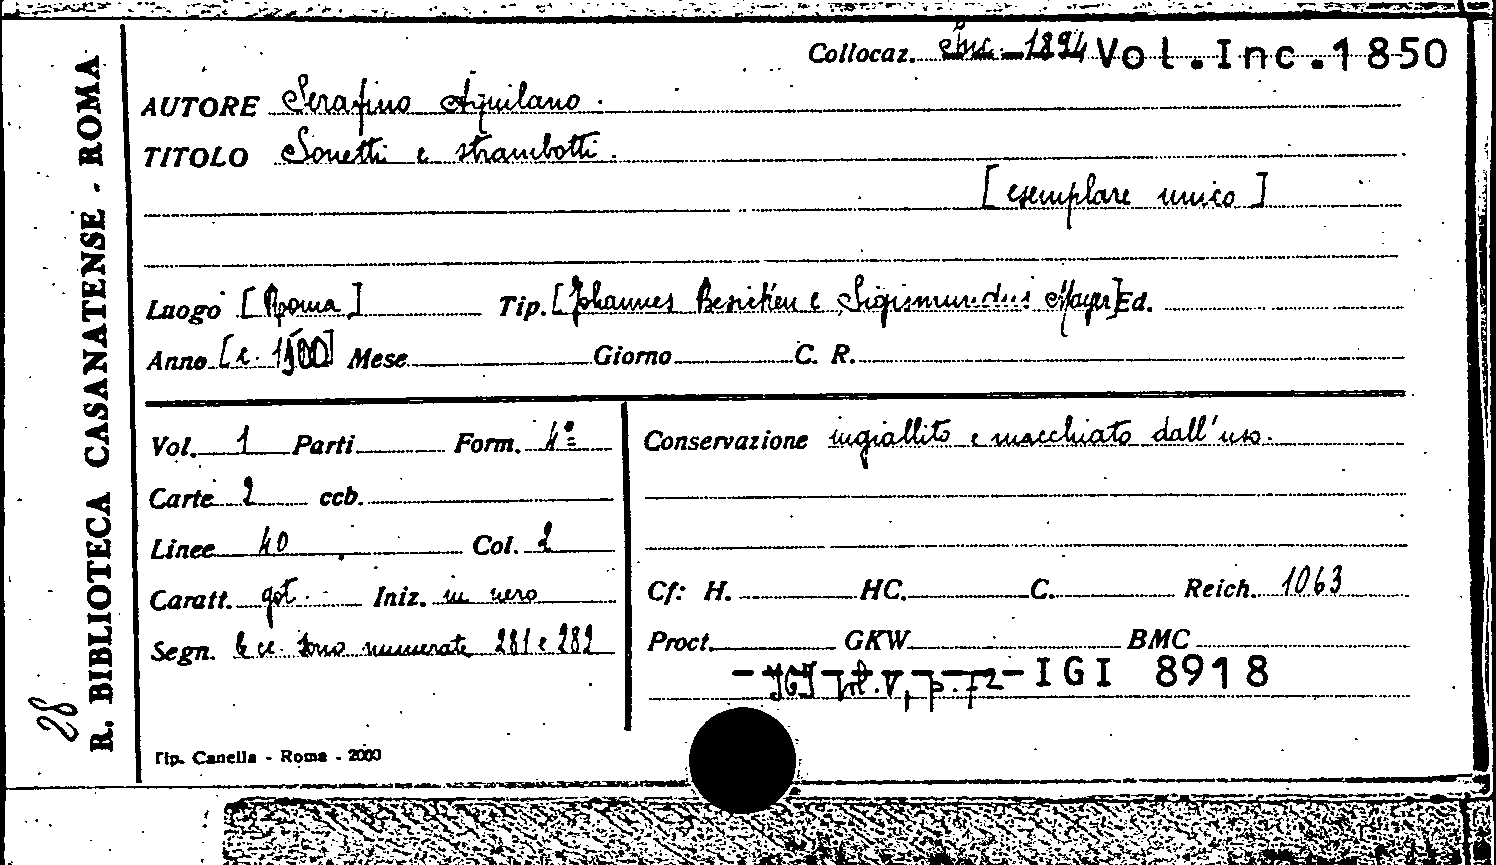 Collocaz. Inc. 1894 Vol.Inc.1850
AUTORE Serafino Aquilano.
TITOLO Sonetti e strambotti.
[esemplare unico]
Luogo [Roma] Tip. [Johannes Besicken e Sigismundus Mayer] Ed.
Anno [c. 1500] Mese Giorno C. R.
Vol. 1 Parti Form. 4º
Carte 2 ccb.
Linee 40 Col. 2
Caratt. got. Iniz. in nero
Segn. le cc. sono numerate 281 e 282
Conservazione ingiallito e macchiato dall'uso.
Cf: H. HC. C. Reich. 1063
Proct. GKW. BMC
IGI vol. V, p. 72 IGI 8918
Tip. Canella - Roma - 2000
R. BIBLIOTECA CASANATENSE - ROMA
28